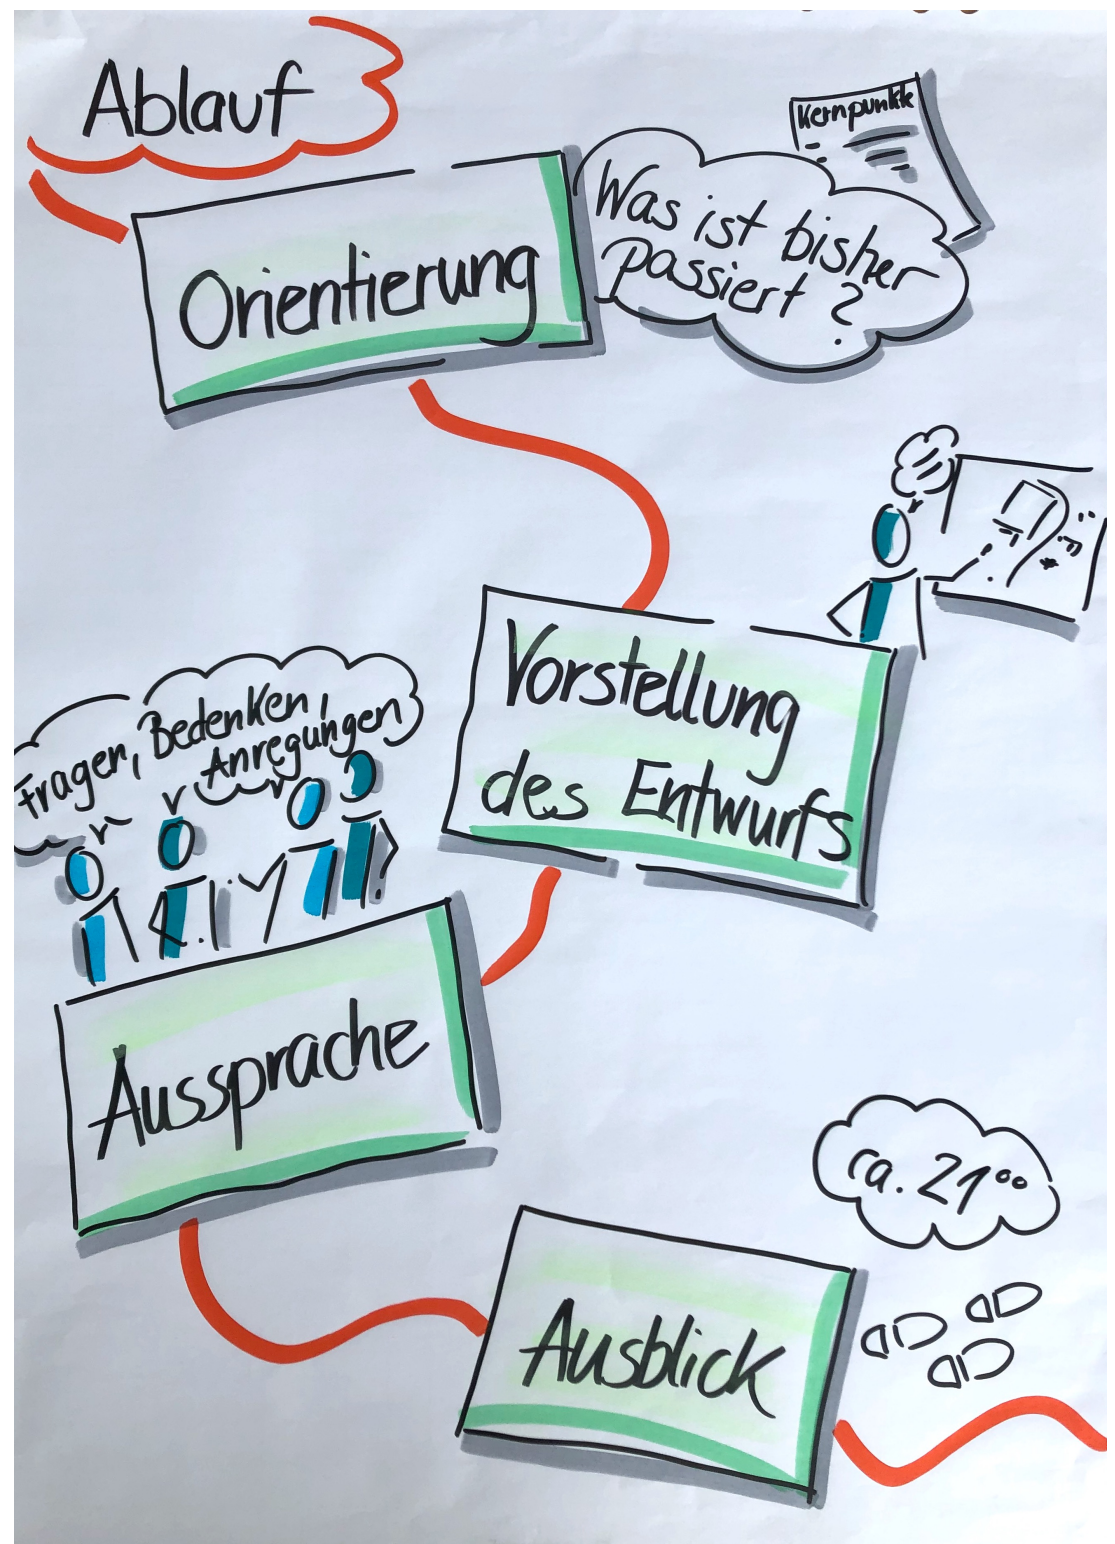 Ablauf
Kernpunkte
Orientierung
Was ist bisher
passiert ?
Vorstellung
des Entwurfs
Fragen, Bedenken,
Anregungen
Aussprache
ca. 21⁰⁰
Ausblick